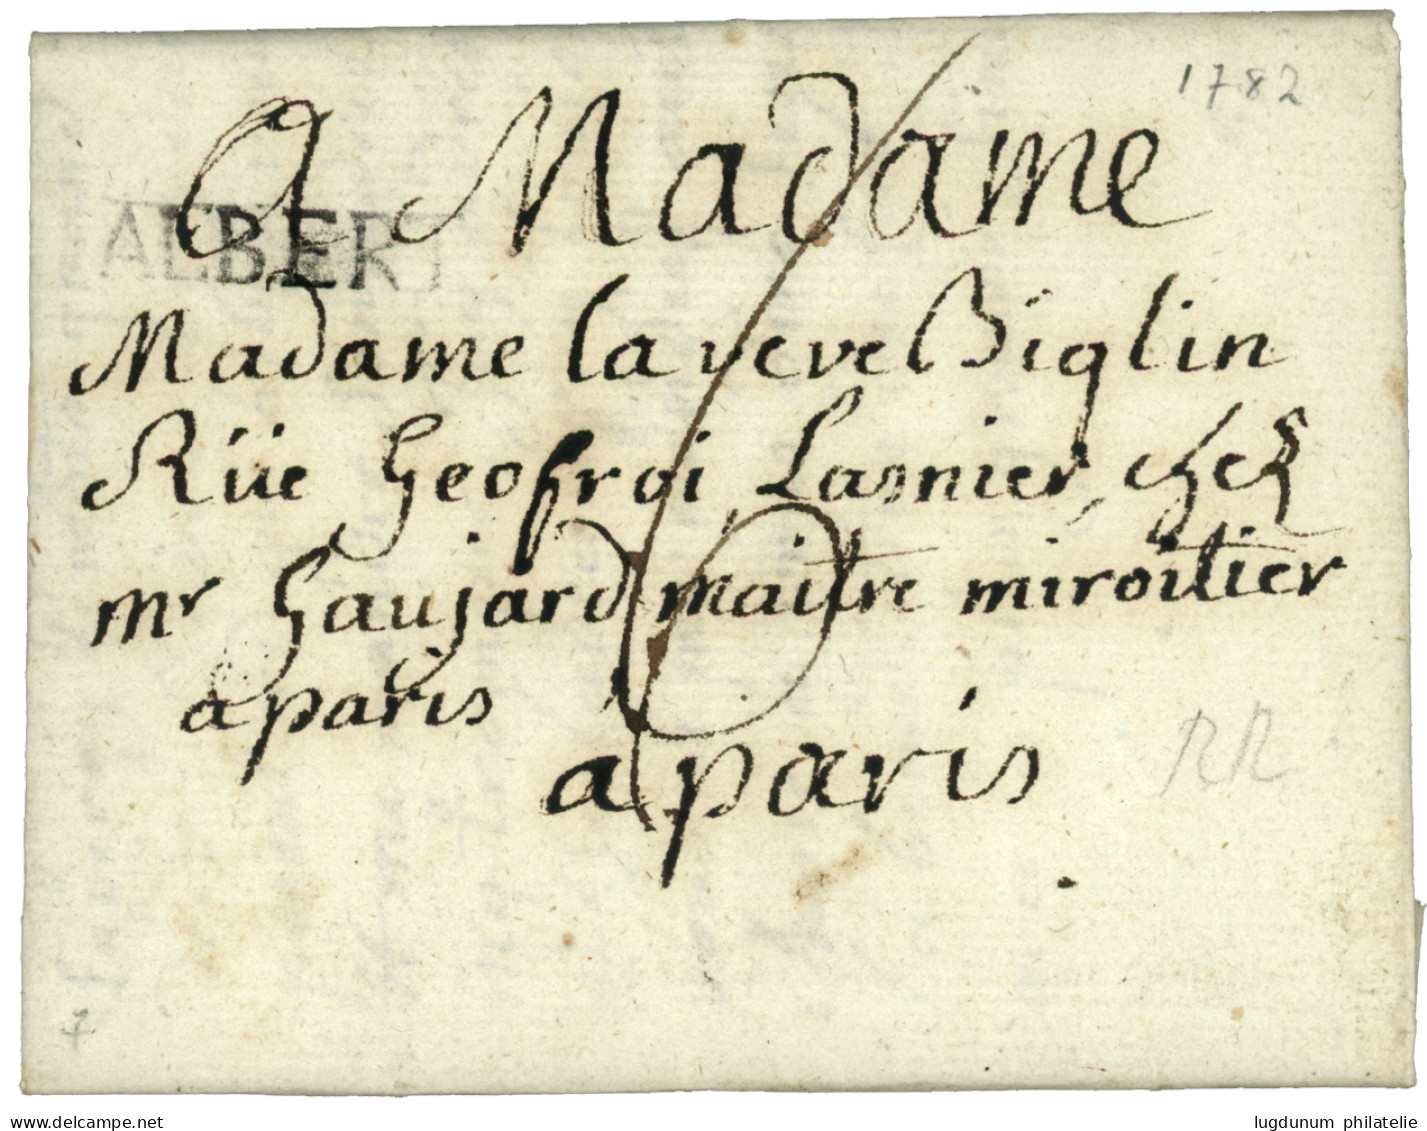 1782
A Madame
ALBERT
Madame la veve Biglin
Rüe Geofroi Lasnier, chez
mr Gaujard maitre miroitier
a paris
a paris
RR
7
www.delcampe.net
lugdunum philatelie